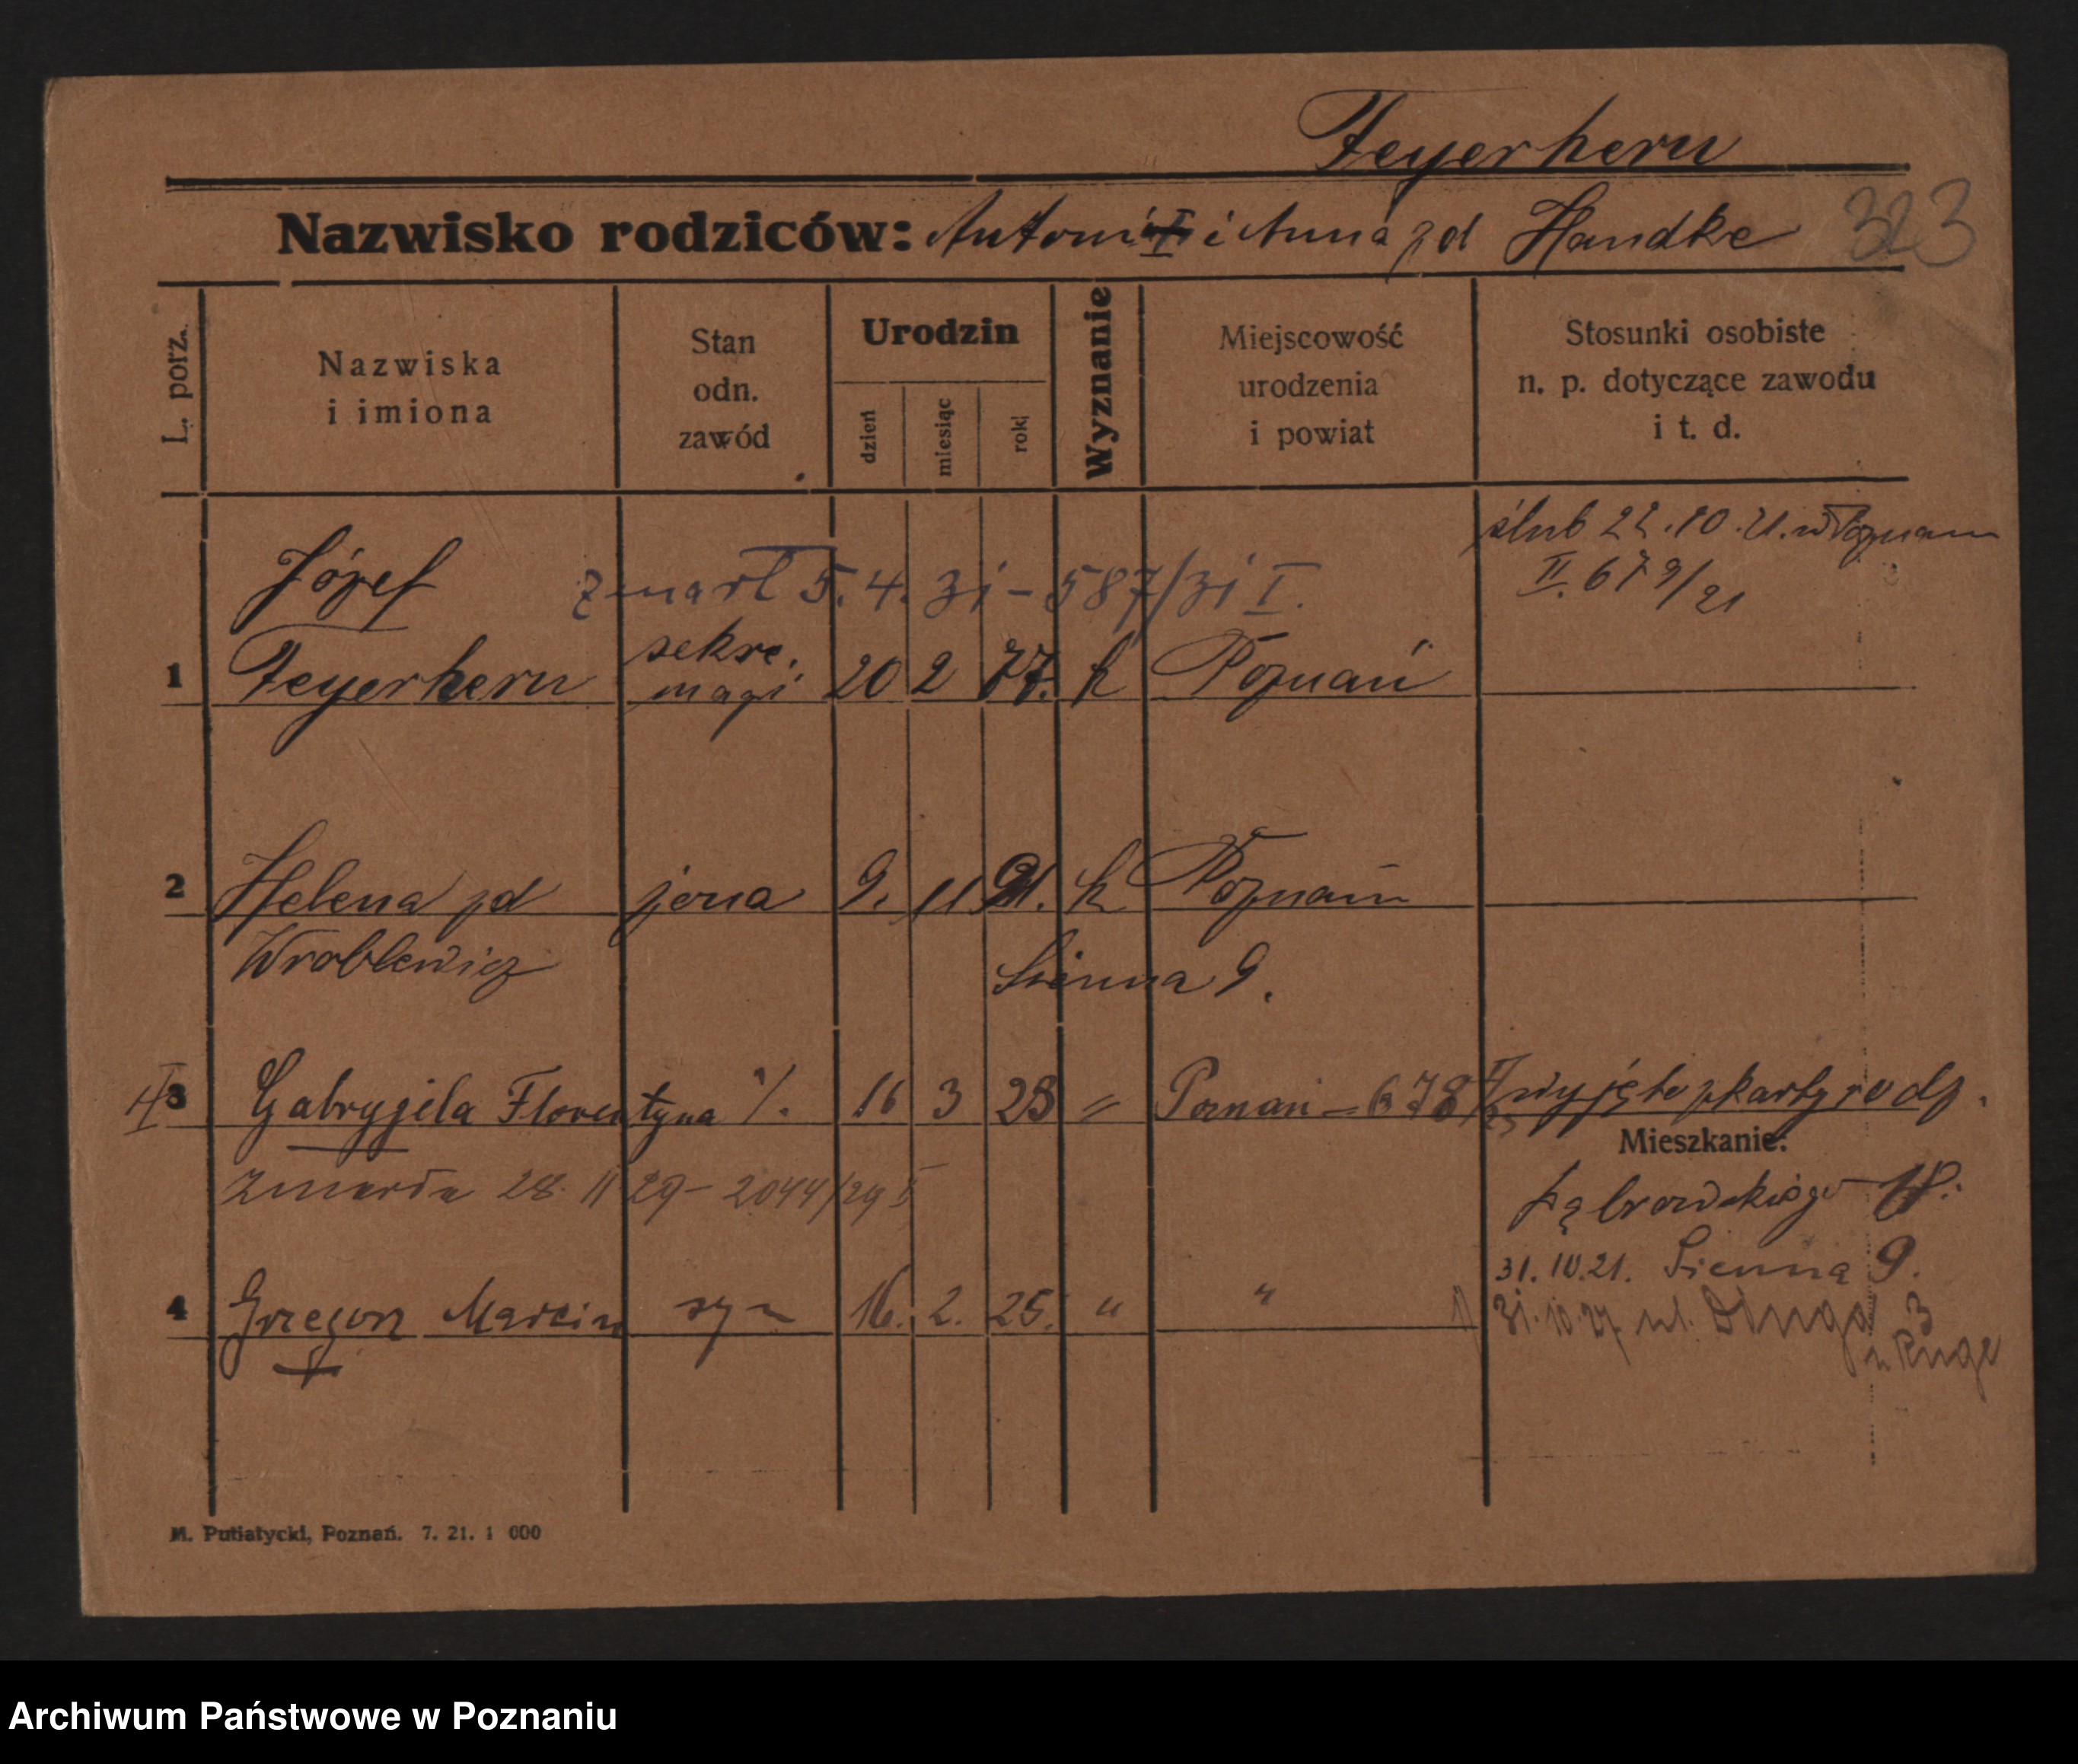 Feyerhern
Nazwisko rodziców: Antoni i Anna zd Handke
323
L. porz.
Nazwiska
i imiona
Stan
odn.
zawód
Urodzin
dzień
miesiąc
rok
Wyznanie
Miejscowość
urodzenia
i powiat
Stosunki osobiste
n. p. dotyczące zawodu
i t. d.
ślub 22.10.21. w Poznan
II. 679/21
Józef zmarł 5.4.31 – 587/31 I.
1 Feyerhern sekre. magi 20 2 77. k Poznań
2 Helena zd żona 9. 11 91. k Poznań
Wroblewicz Sienna 9.
3 Gabryjela Florentyna /. 16 3 23 " Poznań – 678 wyjęte z karty rodz.
Mieszkanie:
Zmarła 28. 11 29 – 2044/29 I
Dąbrowskiego
31.10.21. Sienna 9.
4 Grzegorz Marcin syn 16. 2. 25. " "
31.10.27. ul. Długa 3
u Ruge
M. Putiatycki, Poznań. 7. 21. 1 000
Archiwum Państwowe w Poznaniu